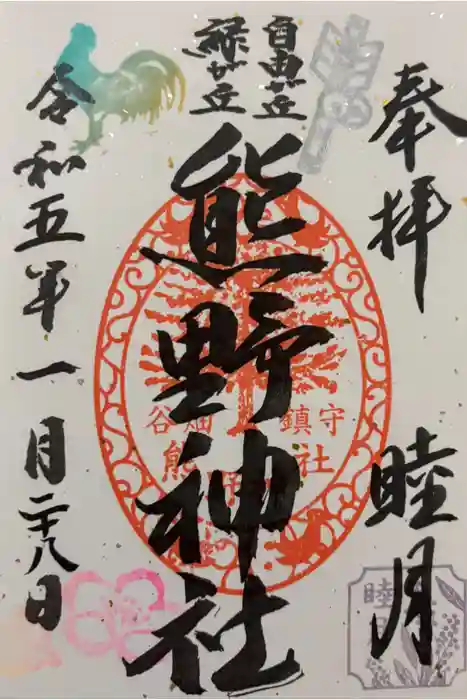 奉拝
睦月
自由が丘
緑が丘
熊野神社
谷畑 鎮守
熊野社
令和五年一月二十八日
睦月